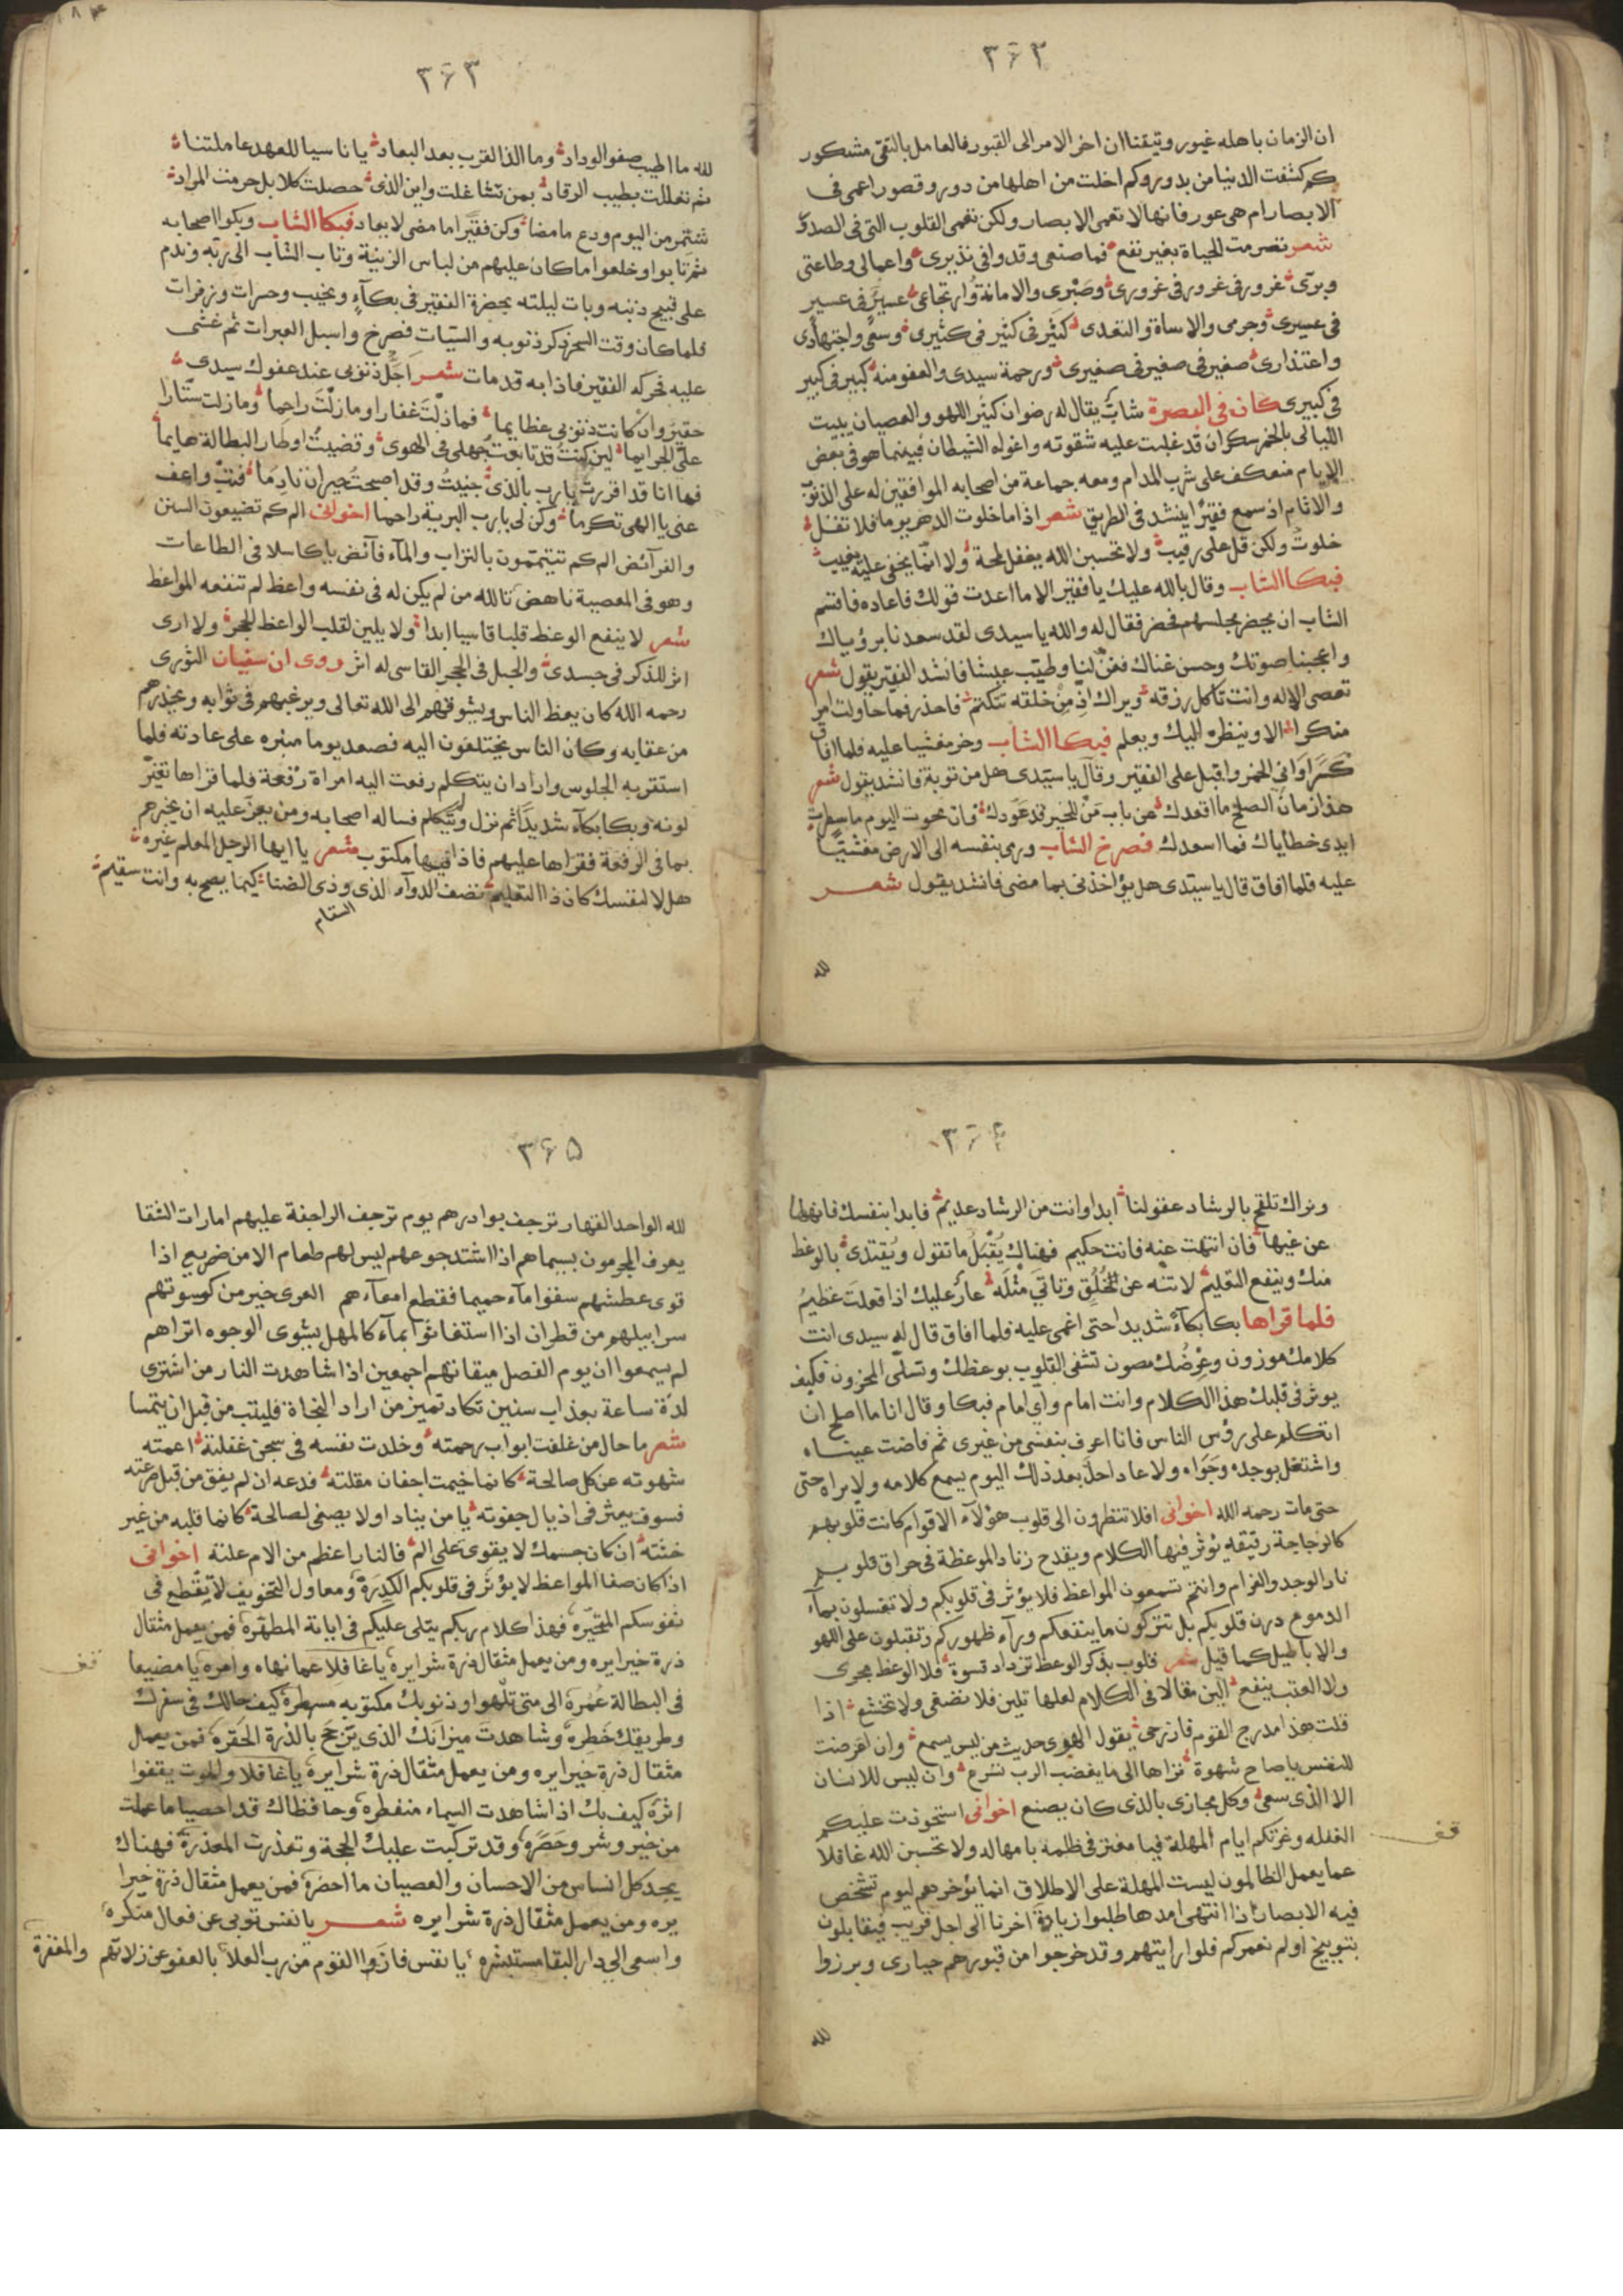 ٣٦٣
ان الزمان باهله غيور وتيقنا ان اخر الامر الى القبور فالعامل بالتقى مشكور
كم كثفت الدنيا من بدور وكم اخلت من اهلها من دور وقصور اعمى فى
الابصار ام هى عور فانها لا تعمى الابصار ولكن تعمى القلوب التى فى الصدور
شعر تصرمت الحياة بغير نفع فما صنعى وقد وافى نذيرى واعمالى وطاعتى
وبرى غرور فى غرور فى غرورى وصبرى والامانة وارتجاعى عسير فى عسير
فى عسيرى وجرمى والاساة والتعدى كثير فى كثير فى كثيرى وسعى واجتهادى
واعتذارى صغير فى صغير فى صغيرى ورحمة سيدى والعفو منه كبير فى كبير
فى كبيرى كان فى البصرة شاب يقال له رضوان كثير اللهو والعصيان يبيت
الليالى بالخمر سكران قد غلبت عليه شقوته واغواه الشيطان فبينما هو فى بعض
الايام منعكف على شرب المدام ومعه جماعة من اصحابه الموافقين له على الذنوب
والاثام اذ سمع فقيرا ينشد فى الطريق شعر اذا ما خلوت الدهر يوما فلا تقل
خلوت ولكن قل على رقيب ولا تحسبن الله يغفل لمحة ولا انما يخفى عليه يغيب
فبكا الشاب وقال بالله عليك يا فقير الا ما اعدت قولك فاعاده فاقسم
الشاب ان يحضر مجلسهم فحضر فقال له والله يا سيدى لقد سعدنا برؤياك
واعجبنا صوتك وحسن غناك فغن لنا وطيب عيشنا فانشد الفقير يقول شعر
تعصى الاله وانت تاكل رزقه ويراك اذ من خلقه تتكتم فاحذر فما حاولت امرا
منكرا الا وينظره اليك ويعلم فبكا الشاب وخر مغشيا عليه فلما افاق
كسر اوانى الخمر واقبل على الفقير وقال يا سيدى هل من توبة فانشد يقول شعر
هذا زمان الصلح ما اقعدك عن باب من للخير قد عودك فان محوت اليوم ما سطرت
ايدى خطاياك فما اسعدك فصرخ الشاب ورمى بنفسه الى الارض مغشيا
عليه فلما افاق قال يا سيدى هل يؤاخذنى بما مضى فانشد يقول شعر
لله
٣٦٣
لله ما اطيب صفو الوداد وما الذا لقرب بعد البعاد يا ناسيا للعهد عاملتنا
ثم تعللت بطيب الرقاد بمن تشاغلت واين الذى حصلت كلا بل حرمت المراد
شمر من اليوم ودع ما مضا وكن فقيرا ما مضى لا يعاد فبكا الشاب وبكوا اصحابه
ثم تابوا وخلعوا ما كان عليهم من لباس الزينة وتاب الشاب الى ربه وندم
على قبيح ذنبه وبات ليلته بحضرة الفقير فى بكآء ونحيب وحسرات وزفرات
فلما كان وقت السحر ذكر ذنوبه والسيات فصرخ واسبل العبرات ثم غشى
عليه فحركه الفقير فاذا به قد مات شعر اجل ذنوبى عند عفوك سيدى
حقير وان كانت ذنوبى عظايما فما زلت غفارا وما زلت راحما وما زلت ستارا
على الجرايما لين كنت قد تابعت جهلى فى الهوى وقضيت اوطار البطالة هايما
فها انا قد اقررت يا رب بالذى جنيت وقد اصبحت حيران نادما فتب واعف
عنى يا الهى تكرما وكن لى يا رب البرية راحما اخوانى الم كم تضيعون السنن
والفرآئض الم كم تتيتمون بالتراب والمآء فآئض يا كاسلا فى الطاعات
وهو فى المعصية ناهض تالله من لم يكن له فى نفسه واعظ لم تنفعه المواعظ
شعر لا ينفع الوعظ قلبا قاسيا ابدا ولا يلين لقلب الواعظ الحجر ولا ارى
اثر للذكر فى جسدى والحبل فى الحجر القاسى له اثر روى ان سفيان الثورى
رحمه الله كان يعظ الناس ويشوقهم الى الله تعالى ويرغبهم فى ثوابه ويحذرهم
من عقابه وكان الناس يختلفون اليه فصعد يوما منبره على عادته فلما
استقر به الجلوس واراد ان يتكلم رفعت اليه امراة رقعة فلما قراها تغير
لونه وبكا بكآء شديدا ثم نزل ولم يتكلم فساله اصحابه ومن يعز عليه ان يخبرهم
بما فى الرقعة فقراها عليهم فاذا فيها مكتوب شعر يا ايها الرجل المعلم غيره
هلا لنفسك كان ذا التعليم تصف الدوآء لذى وذى الضنا كيما يصح به وانت سقيم
السقام
٣٦٤
ونراك تلقح بالرشاد عقولنا ابدا وانت من الرشاد عديم فابدا بنفسك فانهها
عن غيها فان انتهت عنه فانت حكيم فهناك يقبل ما تقول ويقتدى بالوعظ
منك وينفع التعليم لا تنه عن خلق وتاتى مثله عار عليك اذا فعلت عظيم
فلما قراها بكا بكآء شديدا حتى اغمى عليه فلما افاق قال له سيدى انت
كلامك موزون وعرضك مصون تشفى القلوب بوعظك وتسلى المحزون فكيف
يوثر فى قلبك هذا الكلام وانت امام واى امام فبكا وقال انا ما اصلح ان
اتكلم على رؤس الناس فانا اعرف بنفسى من غيرى ثم فاضت عيناه
واشتغل بوجده وجواه ولا عاد احد بعد ذلك اليوم يسمع كلامه ولا يراه حتى
حتى مات رحمه الله اخوانى افلا تنظرون الى قلوب هؤلآء الاقوام كانت قلوبهم
كالزجاجة رقيقه يؤثر فيها الكلام ويقدح زناد الموعظة فى حراق قلوبهم
نار الوجد والغرام وانتم تسمعون المواعظ فلا يؤثر فى قلوبكم ولا تغسلون بمآء
الدموع درن قلوبكم بل تتركون ما ينفعكم ورآء ظهوركم وتقبلون على اللهو
والاباطيل كما قيل شعر قلوب بذكر الوعظ تزداد قسوة فلا الوعظ مجرى
ولا العتب ينفع الين مقالا فى الكلام لعلها تلين فلا تصغى ولا تخشع اذا
قلت هذا مدرج القوم فازرجى يقول الهوى حديث من ليس يسمع وان اعرضت
للنفس يا صاح شهوة تراها الى ما يغضب الرب تسرع وان ليس للانسان
الا الذى سعى وكل مجازى بالذى كان يصنع اخوانى استحوذت عليكم
الغفله وغرتكم ايام المهلة فيا مغتر فى ظلمه بامهاله ولا تحسبن الله غافلا
عما يعمل الظالمون ليست المهلة على الاطلاق انما يؤخرهم ليوم تشخص
فيه الابصار اذا انتهى امدها طلبوا زيادة اخرنا الى اجل قريب فيقابلون
بتوبيخ اولم نعمركم فلو ارايتهم وقد خرجوا من قبورهم حيارى وبرزوا
لله
قف
٣٦٥
لله الواحد القهار ترجف بوادرهم يوم ترجف الراجفة عليهم امارات الشقا
يعرف المجرمون بسيماهم اذا اشتد جوعهم ليس لهم طعام الا من ضريع اذا
قوى عطشهم سقوا مآء حميما فقطع امعآءهم العرى خير من كسوتهم
سرابيلهم من قطران اذا استغاثوا بمآء كالمهل يشوى الوجوه اتراهم
لم يسمعوا ان يوم الفصل ميقاتهم اجمعين اذا شاهدت النار من اشترى
لذة ساعة بعذاب سنين تكاد تميز من اراد النجاة فليتب من قبل ان يتمسا
شعر ما حال من غلقت ابواب رحمته وخلدت نفسه فى سجن غفلته اعمته
شهوته عن كل صالحة كانما خيمت اجفان مقلته فدعه ان لم يفق من قبل صرعته
فسوف يعثر فى اذيال جفوته يا من يناد اولا يصغى لصالحة كانما قلبه من غير
خشته ان كان جسمك لا يقوى على الم فالنار اعظم من الام علته اخوانى
اذا كان صفا المواعظ لا يؤثر فى قلوبكم الكدرة ومعاول التخويف لا يقطع فى
نفوسكم المتحيره فهذا كلام ربكم يتلى عليكم فى اياته المطهرة فمن يعمل مثقال
ذرة خيرا يره ومن يعمل مثقال ذرة شرا يره يا غافلا عما نهاه وامره يا مضيعا
فى البطالة عمره الى متى تلهوا وذنوبك مكتوبه مسطرة كيف حالك فى سفرك
وطريقك خطره وشاهدت ميزانك الذى يترجح بالذرة الحقره فمن يعمل
مثقال ذرة خيرا يره ومن يعمل مثقال ذرة شرا يره يا غافلا والموت يقفوا
اثره كيف بك اذا شاهدت السماء منفطره وحافظاك قد احصيا ما عملت
من خير وشر وحصره وقد تركبت عليك الحجة وتعذرت المعذرة فهناك
يجد كل انساس من الاحسان والعصيان ما احضره فمن يعمل مثقال ذرة خيرا
يره ومن يعمل مثقال ذرة شرا يره شعر يا نفس توبى عن فعال منكره
واسعى الى دار البقا مستبشره يا نفس فازوا القوم من رب العلا بالعفو عن زلاتهم والمغفرة
قف